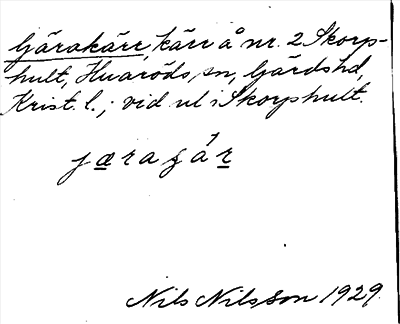 Gärakärr, kärr å nr. 2 Skorp-
hult, Hvaröds sn, Gärds hd,
Krist. l.; vid ul i Skorphult.
Nils Nilsson 1929.